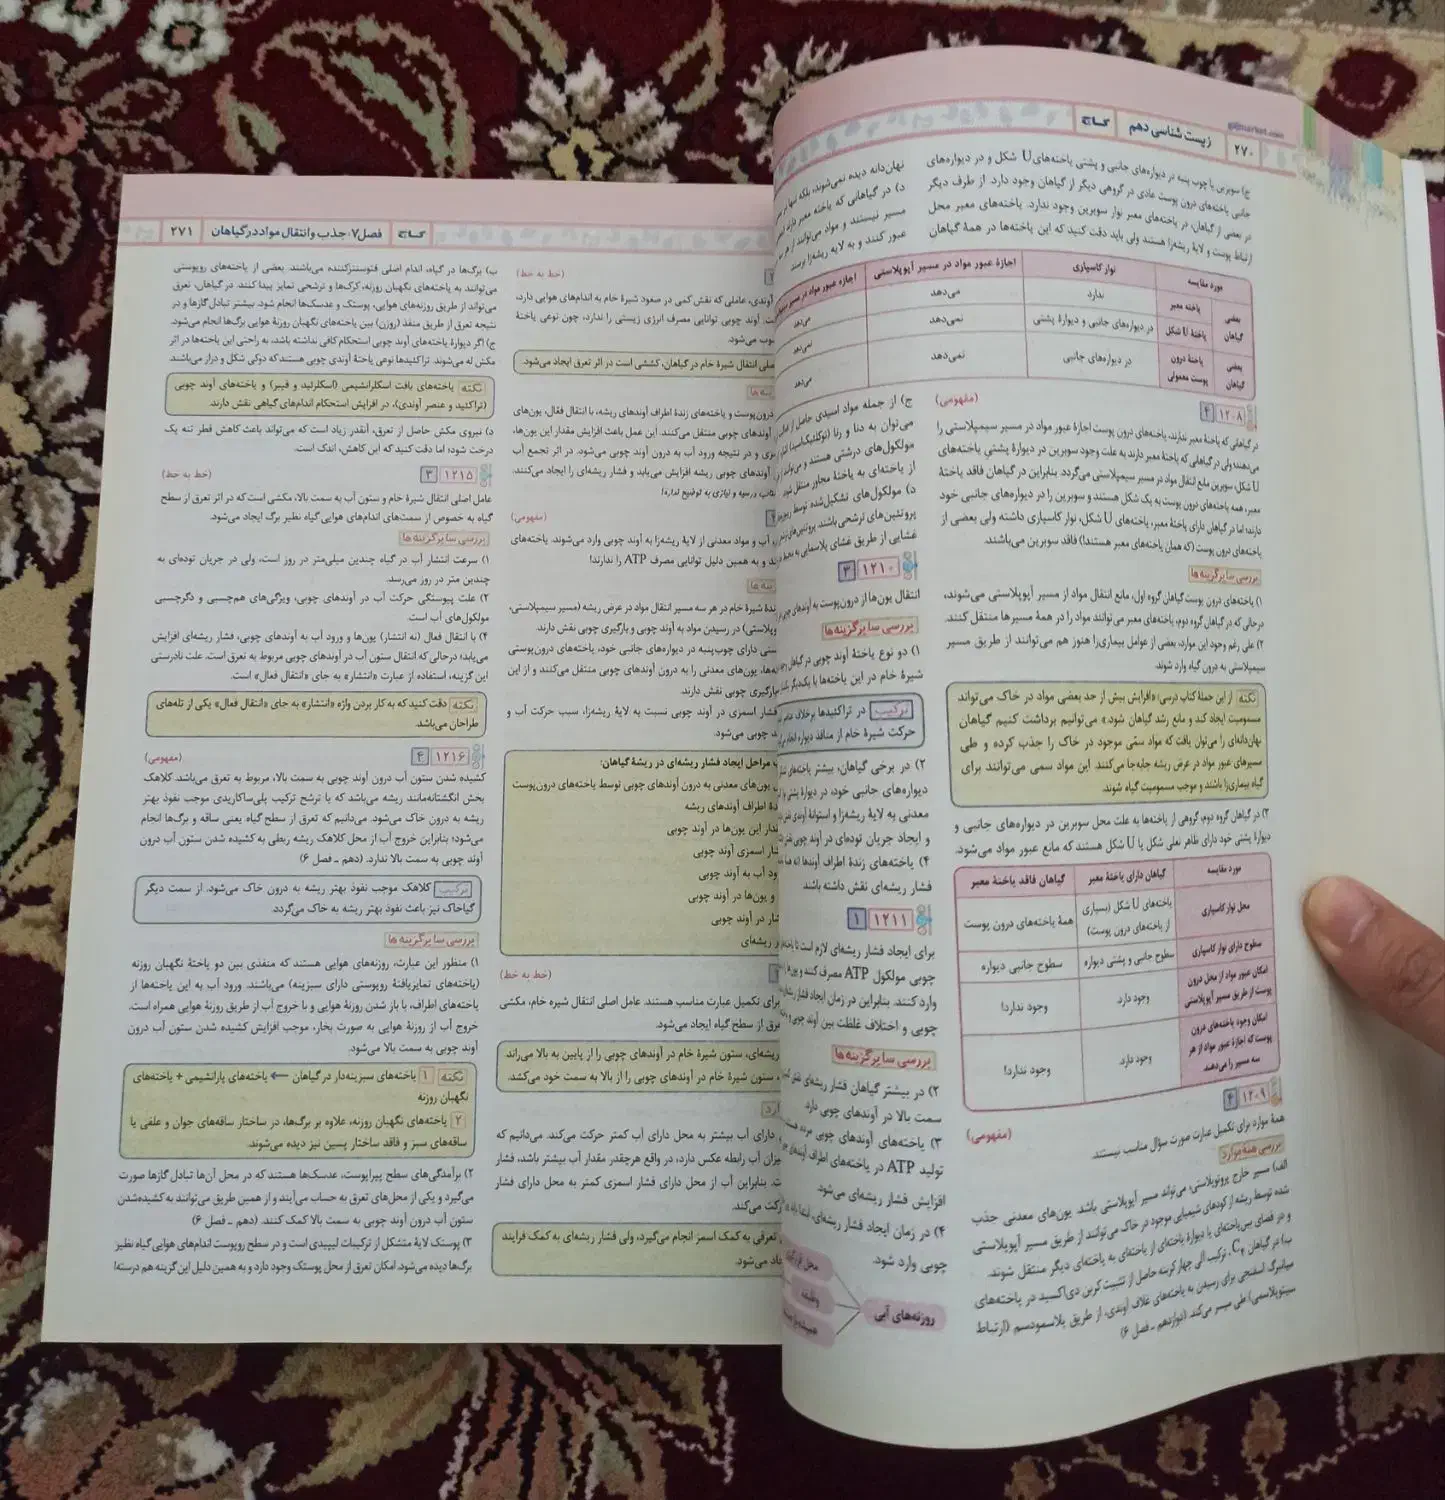 gajmarket.com
۲۷۰ زیست شناسی دهم گاج
ج) سوبرین یا چوب پنبه در دیواره‌های جانبی و پشتی یاخته‌های U شکل و در دیواره‌های
جانبی یاخته‌های درون پوست عادی در گروهی دیگر از گیاهان وجود دارد. از طرف دیگر
در بعضی از گیاهان، در یاخته‌های معبر نوار سوبرین وجود ندارد. یاخته‌های معبر محل
ارتباط پوست و لایهٔ ریشه‌زا هستند ولی باید دقت کنید که این یاخته‌ها در همهٔ گیاهان
نهان‌دانه دیده نمی‌شوند، بلکه تنها در
د) در گیاهانی که یاخته معبر دارند
مسیر نیستند و مواد می‌توانند از هر سه
عبور کنند و به لایه ریشه‌زا برسند
مورد مقایسه نوار کاسپاری اجازهٔ عبور مواد در مسیر آپوپلاستی اجازه عبور مواد در مسیر
بعضی گیاهان یاخته معبر ندارد می‌دهد می‌دهد
یاختهٔ U شکل در دیواره‌های جانبی و دیوارهٔ پشتی نمی‌دهد نمی‌دهد
بعضی گیاهان یاختهٔ درون پوست معمولی در دیواره‌های جانبی نمی‌دهد می‌دهد
۱۲۰۸ ۴ (مفهومی)
در گیاهانی که یاختهٔ معبر ندارند، یاخته‌های درون پوست اجازهٔ عبور مواد در مسیر سیمپلاستی را
می‌دهند ولی در گیاهانی که یاختهٔ معبر دارند به علت وجود سوبرین در دیوارهٔ پشتی یاخته‌های
U شکل، سوبرین مانع انتقال مواد در مسیر سیمپلاستی می‌گردد. بنابراین در گیاهان فاقد یاختهٔ
معبر، همه یاخته‌های درون پوست به یک شکل هستند و سوبرین را در دیواره‌های جانبی خود
دارند؛ اما در گیاهان دارای یاختهٔ معبر، یاخته‌های U شکل، نوار کاسپاری داشته ولی بعضی از
یاخته‌های درون پوست (که همان یاخته‌های معبر هستند!) فاقد سوبرین می‌باشند.
بررسی سایر گزینه ها
۱) یاخته‌های درون پوست گیاهان گروه اول، مانع انتقال مواد از مسیر آپوپلاستی می‌شوند،
درحالی که در گیاهان گروه دوم، یاخته‌های معبر می‌توانند مواد را در همهٔ مسیرها منتقل کنند.
۲) علی رغم وجود این موارد، بعضی از عوامل بیماری‌زا هنوز هم می‌توانند از طریق مسیر
سیمپلاستی به درون گیاه وارد شوند.
نکته از این جملهٔ کتاب درسی: «افزایش بیش از حد بعضی مواد در خاک می‌تواند
مسمومیت ایجاد کند و مانع رشد گیاهان شود.» می‌توانیم برداشت کنیم گیاهان
نهان‌دانه‌ای را می‌توان یافت که مواد سمّی موجود در خاک را جذب کرده و طی
مسیرهای عبور مواد در عرض ریشه جابه‌جا می‌کنند. این مواد سمی می‌توانند برای
گیاه بیماری‌زا باشند و موجب مسمومیت گیاه شوند.
۳) در گیاهان گروه دوم، گروهی از یاخته‌ها به علت محل سوبرین در دیواره‌های جانبی و
دیوارهٔ پشتی خود دارای ظاهر نعلی شکل یا U شکل هستند که مانع عبور مواد می‌شود.
مورد مقایسه گیاهان دارای یاختهٔ معبر گیاهان فاقد یاختهٔ معبر
محل نوار کاسپاری یاخته‌های U شکل (بسیاری از یاخته‌های درون پوست) همهٔ یاخته‌های درون پوست
سطوح دارای نوار کاسپاری سطوح جانبی و پشتی دیواره سطوح جانبی دیواره
امکان عبور مواد از محل درون پوست از طریق مسیر آپوپلاستی وجود دارد. وجود ندارد!
امکان وجود یاخته‌های درون پوست که اجازهٔ عبور مواد از هر سه مسیر را می‌دهند وجود دارد. وجود ندارد!
۱۲۰۹ ۴ (مفهومی)
همهٔ موارد برای تکمیل عبارت صورت سؤال مناسب نیستند.
بررسی همه موارد
الف) مسیر خارج پروتوپلاستی، می‌تواند مسیر آپوپلاستی باشد. یون‌های معدنی جذب
شده توسط ریشه از کودهای شیمیایی موجود در خاک می‌توانند از طریق مسیر آپوپلاستی
و در فضای بین‌یاخته‌ای یا دیوارهٔ یاخته‌ای از یاخته‌ای به یاخته‌ای دیگر منتقل شوند.
ب) در گیاهان C۴، ترکیب آلی چهار کربنه حاصل از تثبیت کربن دی‌اکسید در یاخته‌های
میانبرگ اسفنجی برای رسیدن به یاخته‌های غلاف آوندی، از طریق پلاسمودسم (ارتباط
سیتوپلاسمی) طی مسیر می‌کند. (دوازدهم ـ فصل ۶)
ج) از جمله مواد اسیدی حاصل از
می‌توان به دنا و رنا (نوکلئیک‌اسید)
مولکول‌های درشتی هستند و می‌توانند از
از یاخته‌ای به یاختهٔ مجاور منتقل شوند
د) مولکول‌های تشکیل‌شده توسط
پروتئین‌های ترشحی باشند. پروتئین‌های
غشایی از طریق غشای پلاسمایی به
۱۲۱۰ ۳
انتقال یون‌ها از درون‌پوست به آوندهای چوبی
بررسی سایر گزینه ها
۱) دو نوع یاختهٔ آوند چوبی در گیاهان
شیرهٔ خام در این یاخته‌ها با یکدیگر
ترکیب در تراکئیدها برخلاف عناصر
حرکت شیرهٔ خام از منافذ دیواره انجام
۲) در برخی گیاهان، بیشتر یاخته‌های
دیواره‌های جانبی خود، در دیوارهٔ پشتی
معدنی به لایهٔ ریشه‌زا و استوانهٔ آوندی
و ایجاد جریان توده‌ای در آوند چوبی
۴) یاخته‌های زندهٔ اطراف آوندها
فشار ریشه‌ای نقش داشته باشند
۱۲۱۱ ۱
برای ایجاد فشار ریشه‌ای لازم است تا
چوبی مولکول ATP مصرف کنند و یون‌ها
وارد کنند. بنابراین در زمان ایجاد فشار
چوبی و اختلاف غلظت بین آوند چوبی و
بررسی سایر گزینه ها
۲) در بیشتر گیاهان فشار ریشه‌ای نقش
سمت بالا در آوندهای چوبی دارد.
۳) یاخته‌های آوندهای چوبی مرده هستند
تولید ATP در یاخته‌های اطراف آوندهای
افزایش فشار ریشه‌ای می‌شود.
۴) در زمان ایجاد فشار ریشه‌ای، ابتدا باید
چوبی وارد شود.
روزنه‌های آبی
محل قرارگیری
وظیفه
فصل ۷: جذب و انتقال مواد در گیاهان ۲۷۱ گاج
(خط به خط)
آوندی، عاملی که نقش کمی در صعود شیرهٔ خام به اندام‌های هوایی دارد،
آوند چوبی توانایی مصرف انرژی زیستی را ندارد، چون نوعی یاختهٔ
می‌شود.
اصلی انتقال شیرهٔ خام در گیاهان، کششی است در اثر تعرق ایجاد می‌شود.
درون‌پوست و یاخته‌های زندهٔ اطراف آوندهای ریشه، با انتقال فعّال، یون‌های
آوندهای چوبی منتقل می‌کنند. این عمل باعث افزایش مقدار این یون‌ها،
و در نتیجه ورود آب به درون آوند چوبی می‌شود. در اثر تجمع آب
آوندهای چوبی ریشه افزایش می‌یابد و فشار ریشه‌ای را ایجاد می‌کنند.
و نیازی به توضیح ندارد!
(مفهومی)
آب و مواد معدنی از لایهٔ ریشه‌زا به آوند چوبی وارد می‌شوند. یاخته‌های
و به همین دلیل توانایی مصرف ATP را ندارند!
شیرهٔ خام در هر سه مسیر انتقال مواد در عرض ریشه (مسیر سیمپلاستی،
در رسیدن مواد به آوند چوبی و بارگیری چوبی نقش دارند.
دارای چوب‌پنبه در دیواره‌های جانبی خود، یاخته‌های درون‌پوستی
یون‌های معدنی را به درون آوندهای چوبی منتقل می‌کنند و از این
بارگیری چوبی نقش دارند.
فشار اسمزی در آوند چوبی نسبت به لایهٔ ریشه‌زا، سبب حرکت آب و
چوبی می‌شود.
مراحل ایجاد فشار ریشه‌ای در ریشهٔ گیاهان:
یون‌های معدنی به درون آوندهای چوبی توسط یاخته‌های درون‌پوست
اطراف آوندهای ریشه
این یون‌ها در آوند چوبی
اسمزی آوند چوبی
آب به آوند چوبی
و یون‌ها در آوند چوبی
در آوند چوبی
ریشه‌ای
(خط به خط)
برای تکمیل عبارت مناسب هستند. عامل اصلی انتقال شیرهٔ خام، مکشی
از سطح گیاه ایجاد می‌شود.
ریشه‌ای، ستون شیرهٔ خام در آوندهای چوبی را از پایین به بالا می‌راند
ستون شیرهٔ خام در آوندهای چوبی را از بالا به سمت خود می‌کشد.
دارای آب بیشتر به محل دارای آب کمتر حرکت می‌کند. می‌دانیم که
آب رابطه عکس دارد، در واقع هرچقدر مقدار آب بیشتر باشد، فشار
بنابراین آب از محل دارای فشار اسمزی کمتر به محل دارای فشار
حرکت می‌کند.
تعرقی به کمک اسمز انجام می‌گیرد، ولی فشار ریشه‌ای به کمک فرایند
می‌شود.
ب) برگ‌ها در گیاه، اندام اصلی فتوسنتزکننده می‌باشند. بعضی از یاخته‌های روپوستی
می‌توانند به یاخته‌های نگهبان روزنه، کرک‌ها و ترشحی تمایز پیدا کنند. در گیاهان، تعرق
می‌تواند از طریق روزنه‌های هوایی، پوستک و عدسک‌ها انجام شود. بیشتر تبادل گازها و در
نتیجه تعرق از طریق منفذ (روزن) بین یاخته‌های نگهبان روزنهٔ هوایی برگ‌ها انجام می‌شود.
ج) اگر دیوارهٔ یاخته‌های آوند چوبی استحکام کافی نداشته باشد، به راحتی این یاخته‌ها در اثر
مکش له می‌شوند. تراکئیدها نوعی یاختهٔ آوندی چوبی هستند که دوکی شکل و دراز می‌باشند.
نکته یاخته‌های بافت اسکلرانشیمی (اسکلرئید و فیبر) و یاخته‌های آوند چوبی
(تراکئید و عنصر آوندی)، در افزایش استحکام اندام‌های گیاهی نقش دارند.
د) نیروی مکش حاصل از تعرق، آنقدر زیاد است که می‌تواند باعث کاهش قطر تنه یک
درخت شود؛ اما دقت کنید که این کاهش، اندک است.
۱۲۱۵ ۳ (خط به خط)
عامل اصلی انتقال شیرهٔ خام و ستون آب به سمت بالا، مکشی است که در اثر تعرق از سطح
گیاه به خصوص از سمت‌های اندام‌های هوایی گیاه نظیر برگ ایجاد می‌شود.
بررسی سایر گزینه ها
۱) سرعت انتشار آب در گیاه چندین میلی‌متر در روز است، ولی در جریان توده‌ای به
چندین متر در روز می‌رسد.
۲) علت پیوستگی حرکت آب در آوندهای چوبی، ویژگی‌های هم‌چسبی و دگرچسبی
مولکول‌های آب است.
۴) با انتقال فعال (نه انتشار) یون‌ها و ورود آب به آوندهای چوبی، فشار ریشه‌ای افزایش
می‌یابد؛ درحالی که انتقال ستون آب در آوندهای چوبی مربوط به تعرق است. علت نادرستی
این گزینه، استفاده از عبارت «انتشار» به جای «انتقال فعال» است.
نکته دقت کنید که به کار بردن واژه «انتشار» به جای «انتقال فعال» یکی از تله‌های
طراحان می‌باشد.
۱۲۱۶ ۴ (مفهومی)
کشیده شدن ستون آب درون آوند چوبی به سمت بالا، مربوط به تعرق می‌باشد. کلاهک
بخش انگشتانه‌مانند ریشه می‌باشد که با ترشح ترکیب پلی‌ساکاریدی موجب نفوذ بهتر
ریشه به درون خاک می‌شود. می‌دانیم که تعرق از سطح گیاه یعنی ساقه و برگ‌ها انجام
می‌شود؛ بنابراین خروج آب از محل کلاهک ریشه ربطی به کشیده شدن ستون آب درون
آوند چوبی به سمت بالا ندارد. (دهم ـ فصل ۶)
ترکیب کلاهک موجب نفوذ بهتر ریشه به درون خاک می‌شود. از سمت دیگر
گیاخاک نیز باعث نفوذ بهتر ریشه به خاک می‌گردد.
بررسی سایر گزینه ها
۱) منظور این عبارت، روزنه‌های هوایی هستند که منفذی بین دو یاختهٔ نگهبان روزنه
(یاخته‌های تمایزیافتهٔ روپوستی دارای سبزینه) می‌باشند. ورود آب به این یاخته‌ها از
یاخته‌های اطراف، با باز شدن روزنهٔ هوایی و با خروج آب از طریق روزنهٔ هوایی همراه است.
خروج آب از روزنهٔ هوایی به صورت بخار، موجب افزایش کشیده شدن ستون آب درون
آوند چوبی به سمت بالا می‌شود.
نکته ۱ یاخته‌های سبزینه‌دار در گیاهان ← یاخته‌های پارانشیمی + یاخته‌های
نگهبان روزنه
۲ یاخته‌های نگهبان روزنه، علاوه بر برگ‌ها، در ساختار ساقه‌های جوان و علفی یا
ساقه‌های سبز و فاقد ساختار پسین نیز دیده می‌شوند.
۲) برآمدگی‌های سطح پیراپوست، عدسک‌ها هستند که در محل آن‌ها تبادل گازها صورت
می‌گیرد و یکی از محل‌های تعرق به حساب می‌آیند و از همین طریق می‌توانند به کشیده‌شدن
ستون آب درون آوند چوبی به سمت بالا کمک کنند. (دهم ـ فصل ۶)
۳) پوستک لایهٔ متشکل از ترکیبات لیپیدی است و در سطح روپوست اندام‌های هوایی گیاه نظیر
برگ‌ها دیده می‌شود. امکان تعرق از محل پوستک وجود دارد و به همین دلیل این گزینه هم درسته!